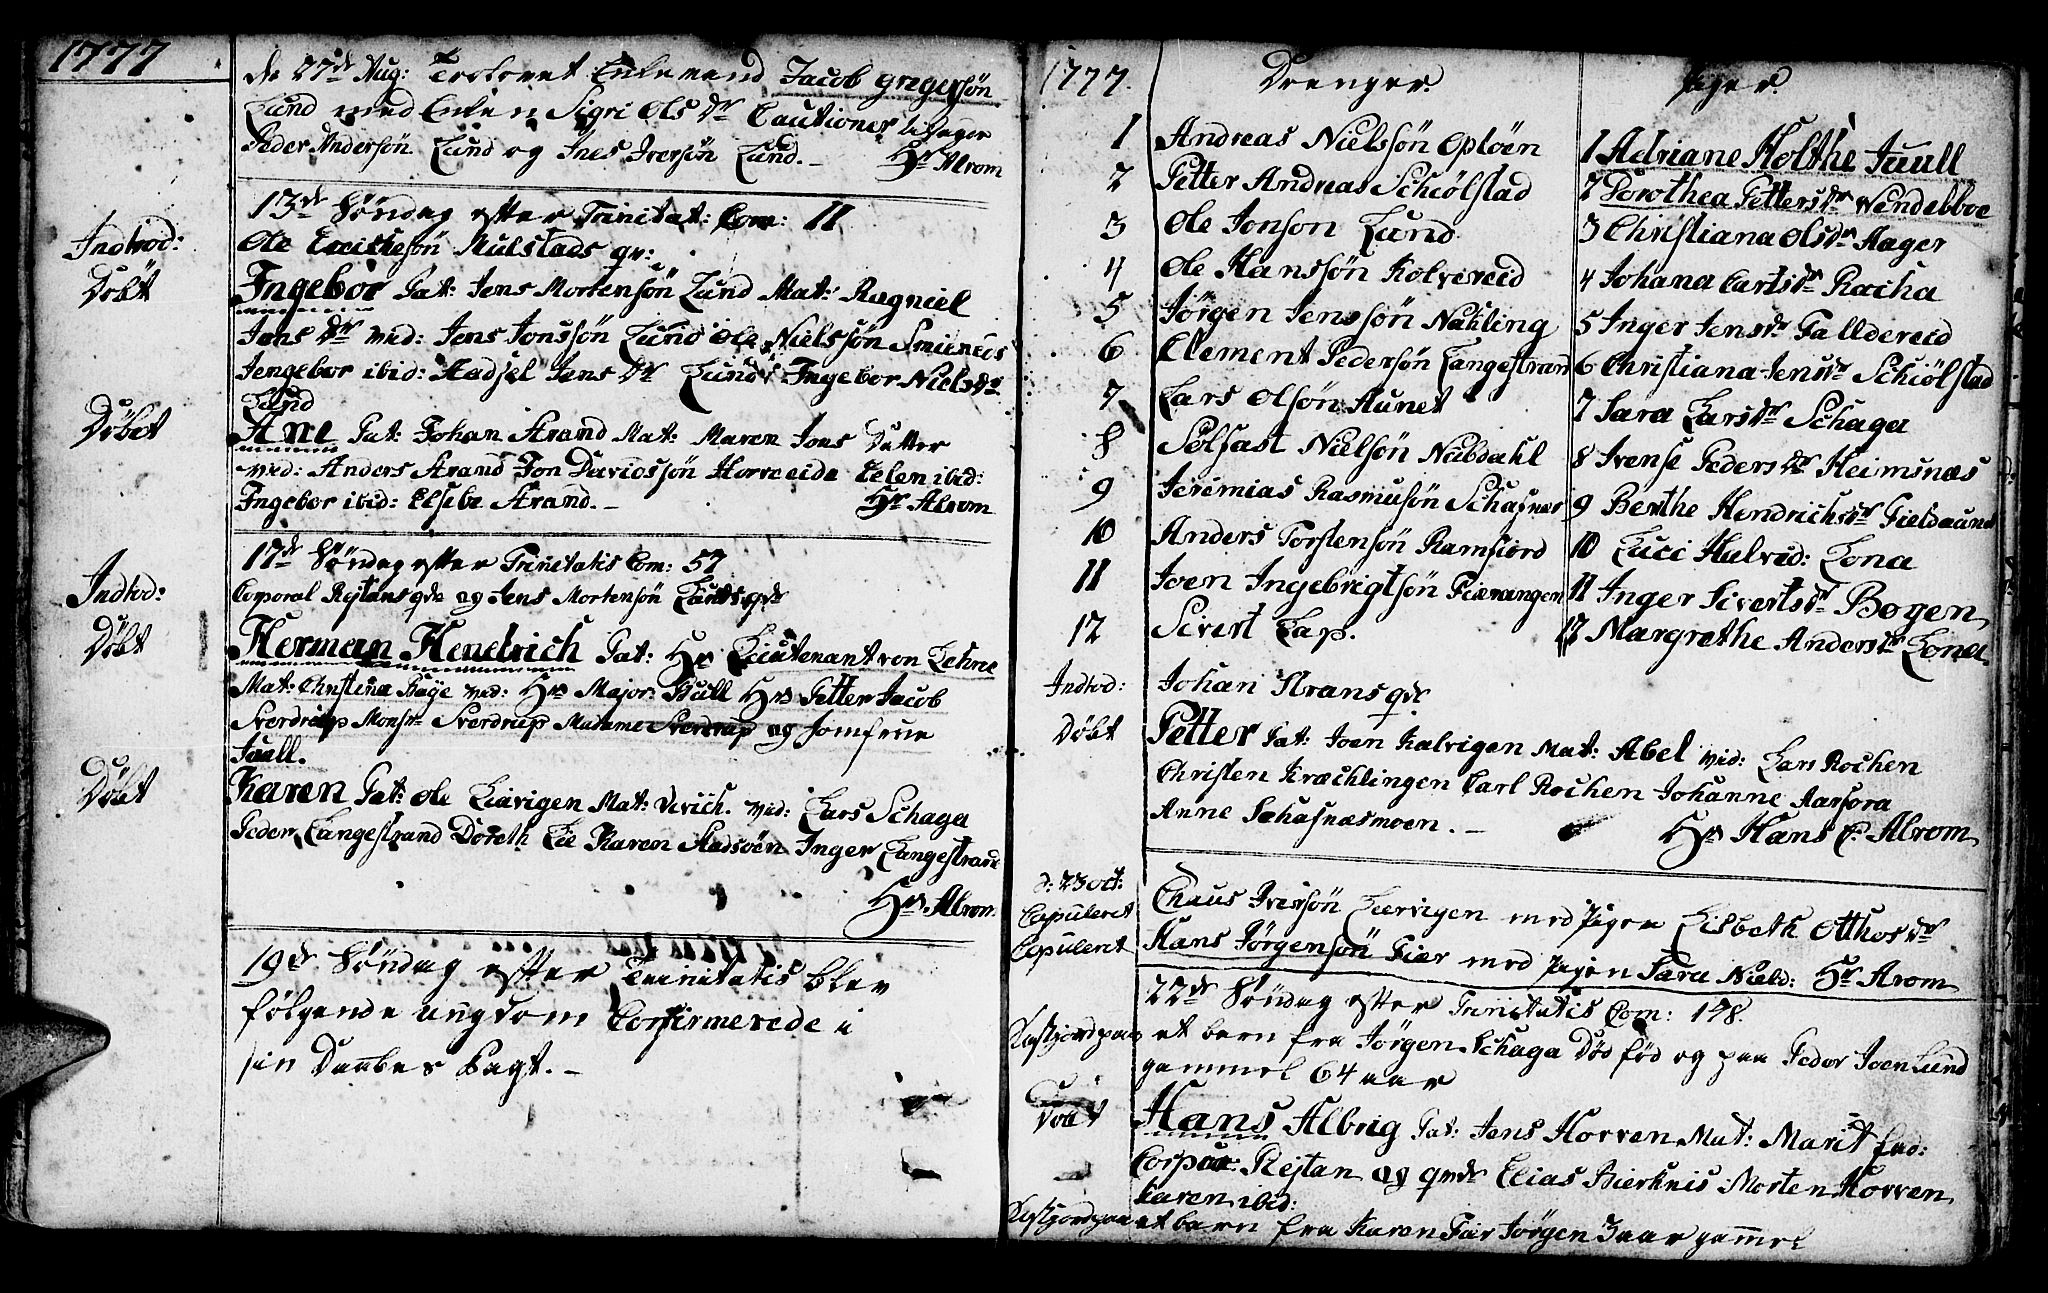 1777
de 27de Aug: Troloved Enkemand Jacob grgersøn
Lund med Enken Sigri Ols Dr Cautioner
Peder Andersøn Lund og Jnes Jversøn Lund. — Hr Alrom
13de Søndag efter Trinitat: Com: 11
Indled: Ole søn Mulstads qv:
Døbt Ingebor Pat: Jens Mortensøn Lund Mat: Ragniel
Jons Dr vid: Jens Jonssøn Lund Ole Nielssøn
Jengebor ibid: Aadsel Jens Dr Lund Ingebor Niels Dr
Lund
Døbet Ane Pat: Johan Arand Mat: Maren Jons Datter
vid: Anders Arand Jon Davidssøn Horreeide Elen ibid:
Ingebor ibid: Elsebe Arand. — Hr Alrom
17de Søndag efter Trinitatis Com: 57
Indled: Corporal Rejtans qde og Jens Mortensøn Lunds qde
Døbt Herman Hendrich Pat: Hr Lieutenant von Lehne
Mat: Christina Baye vid: Hr Major Hr Petter Jacob
Sverdrup Monsr Sverdrup Madame Sverdrup og Jomfrue
Juull.
Døbt Karen Pat: Ole Liavigen Mat: vid: Lars Schaga
Peder Langestrand Doreth Lie Karen Aadsøen Inger Langestrand
Hr. Alrom
19de Søndag efter Trenitatis blev
følgende ungdom Confirmerede i
sin Daabes Pagt. —
1777. Drenger. Piger.
1 Andreas Nielssøn Opløen
2 Petter Andreas Schiølstad
3 Ole Jonson Lund
4 Ole Hanssøn Kolvereid
5 Jørgen Jenssøn Nahling
6 Clement Pedersøn Langestrand
7 Lars Olsøn Aunet
8 Solfast Nielsøn Nubdahl
9 Jeremias Rasmusøn Schafnæs
10 Anders Torstensøn Ramfiord
11 Joen Ingebrigtsøn Fiærangen
12 Sivert Lap.
1 Adriane Holthe Juull
2 Dorothea Petters Dr Wendelboe
3 Christiana Ols Dr Aager
4 Johana Carls Dr Rocha
5 Inger Jens Dr Falldereid
6 Christiana Jens Dr Schiølstad
7 Sara Lars Dr Schaga
8 Jrense Peders Dr Heimsnæs
9 Berthe Hendrichs Dr Fieldaune
10 Luci Halvd: Lona
11 Inger Siverts Dr Bogen
12 Margrethe Anders Dr Lona
Indled: Johan Strans qde
Døbt Petter Pat: Joen Kalvigen Mat: Abel vid: Lars Rochen
Christen Krachlingen Carl Rochen Johanne Aarfora
Anne Schafnæsmoen. — Hr Hans C. Alrom
d: 23 Oct:
Copuleret Claus Jversøn Liervigen med Pigen Lisbeth Otthos Dr
Copuleret Hans Jørgensøn Fiær med Pigen Sara Nield: Hr Arom
22de Søndag efter Trinitatis Com: 178.
Kastjordpaa et barn fra Jørgen Schaga død fød og paa Peder Joen Lund
gammel 64 aar
Døbt Hans Albrig Pat: Jens Horren Mat: Marit
Corpor: Rejtan og qde Elias Bierknis Morten Horren
Karen ibid:
Kastjordpaa et barn fra Karen Fiær Jørgen 3 aar gammel